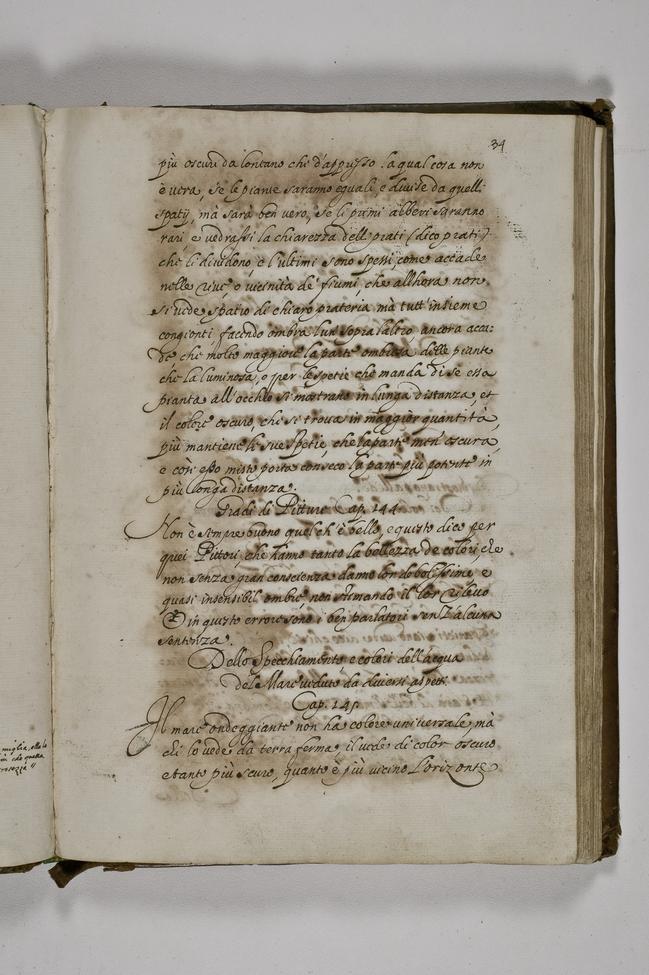 34
più oscure da lontano che d'appresso la qual cosa non
è vera, se le piante saranno equali, e divise da quelli
spatij, mà sarà ben vero, se li primi alberi saranno
rari, e vedrassi la chiarezza delli prati (dico prati)
che li dividono, e l'ultimi sono spessi, come accade
nelle rive, e vicinità de' fiumi, che all'hora non
si vede spatio di chiaro prateria mà tutt'insieme
congionti facendo ombra l'un sopra l'altro, ancora acca:
de che molto maggiore la parte ombrosa delle piante
che la luminosa, e per le spetie che manda di se essa
pianta all'occhio si mostrano in lunga distanza, et
il colore oscuro, che si trova in maggior quantità,
più mantiene le sue spetie, che la parte men oscura,
e così esso misto porta con seco la parte più potente in
più longa distanza.
Gradi di Pitture Cap. 144.
Non è sempre buono quel ch'è bello, e questo dico per
quei Pittori, che hanno tanto la bellezza de colori, che
non senza gran conscienza danno lor debolissime, e
quasi insensibil ombre, non stimando il lor rilevo
Et in questo errore sono i ben parlatori senz'alcuna
sentenza.
Dello Specchiamento, e colori dell'acqua
del Mare veduto da diversi aspetti.
Cap. 145.
Il mare ondeggiante non ha colore universale, mà
chi lo vede da terra ferma, il vede di color oscuro
e tanto più scuro, quanto è più vicino l'orizonte
miglia,